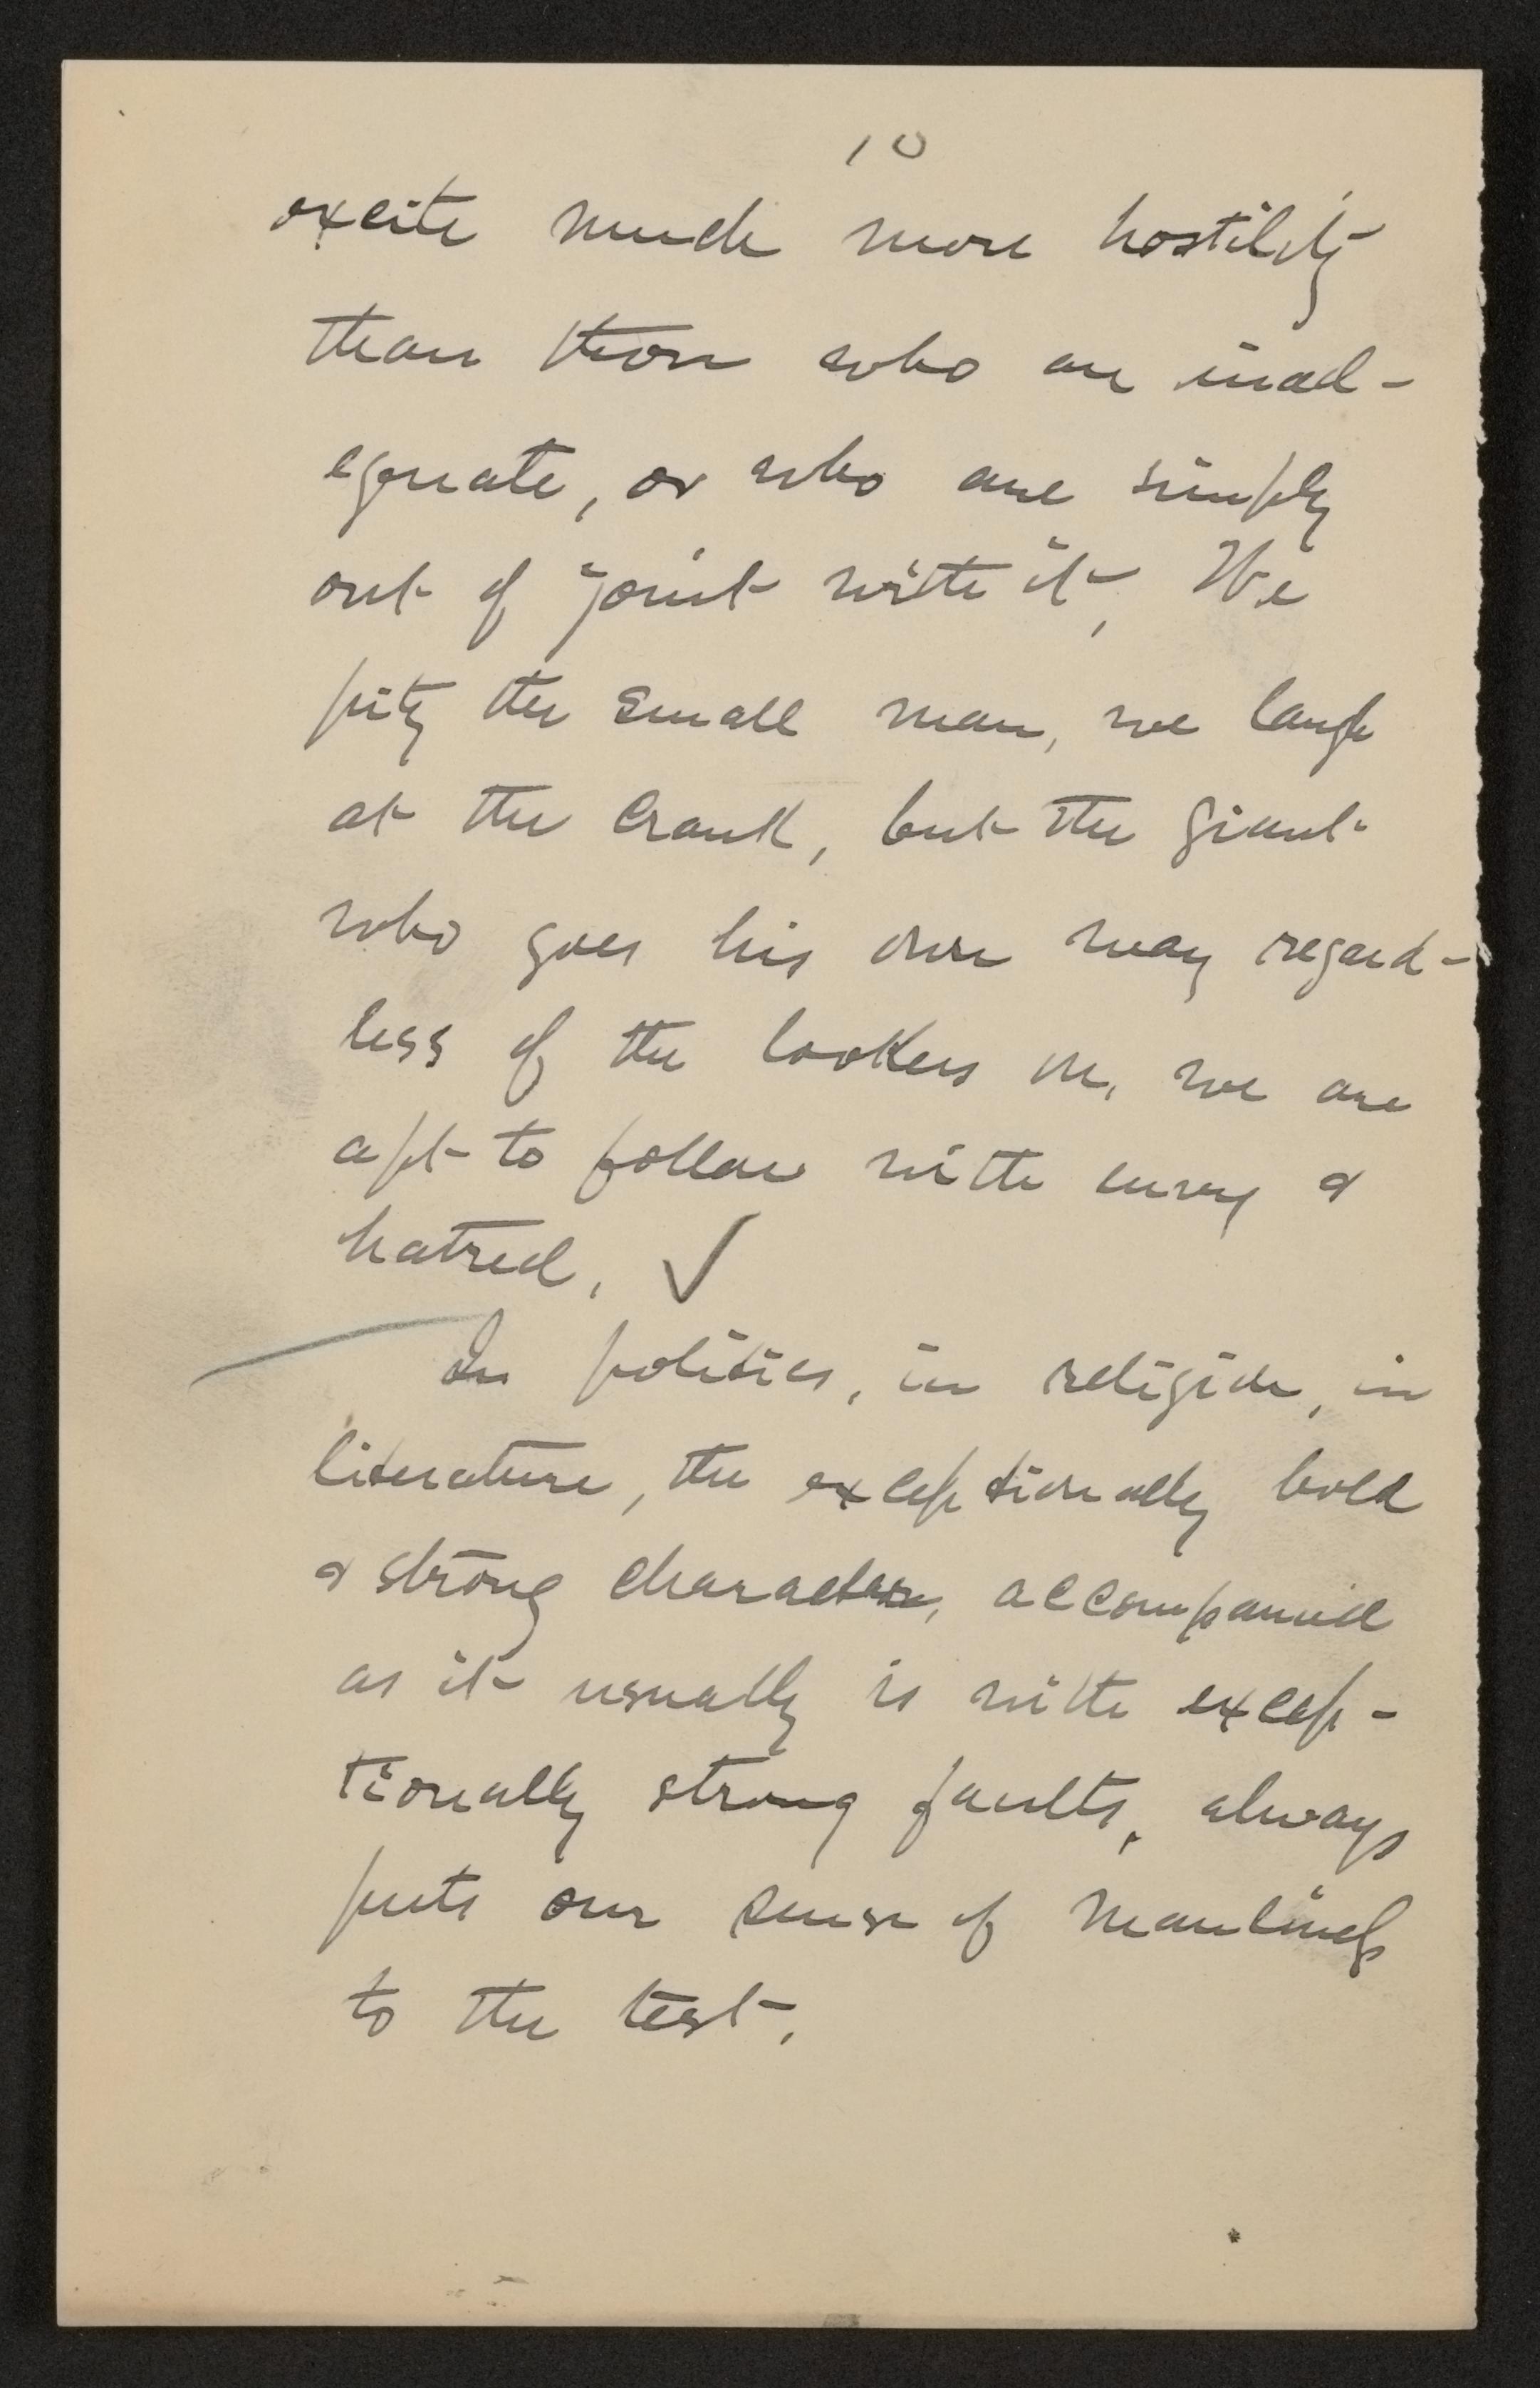 10
excite much more hostility
than those who are inad-
equate, or who are simply
out of joint with it. We
pity the small man, we laugh
at the crank, but the giant
who goes his own way regard-
less of the lookers on, we are
apt to follow with envy &
hatred. ✓
In politics, in religion, in
literature, the exceptionally bold
& strong character, accompanied
as it usually is with excep-
tionally strong faults, always
puts our sense of manliness
to the test.